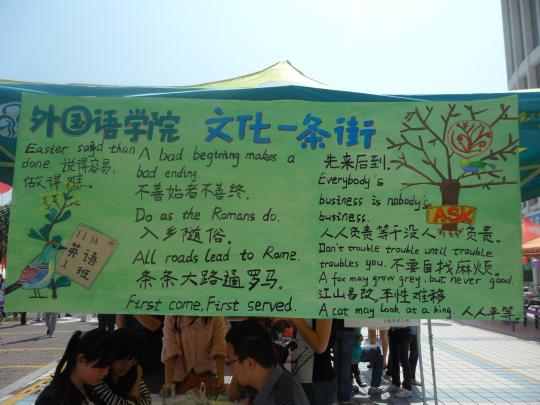 外国语学院 文化一条街
Easier said than
done 说得容易，
做得难。
11 级
英语
1班
A bad beginning makes a
bad ending.
不善始者不善终.
Do as the Romans do.
入乡随俗。
All roads lead to Rome.
条条大路通罗马。
First come, First served.
先来后到.
Everybody's
business is nobody's
business.
人人负责等于没人负责。
Don't trouble trouble until trouble
troubles you. 不要自找麻烦.
A fox may grow grey, but never good.
江山易改,本性难移
A cat may look at a king. 人人平等.
ASK